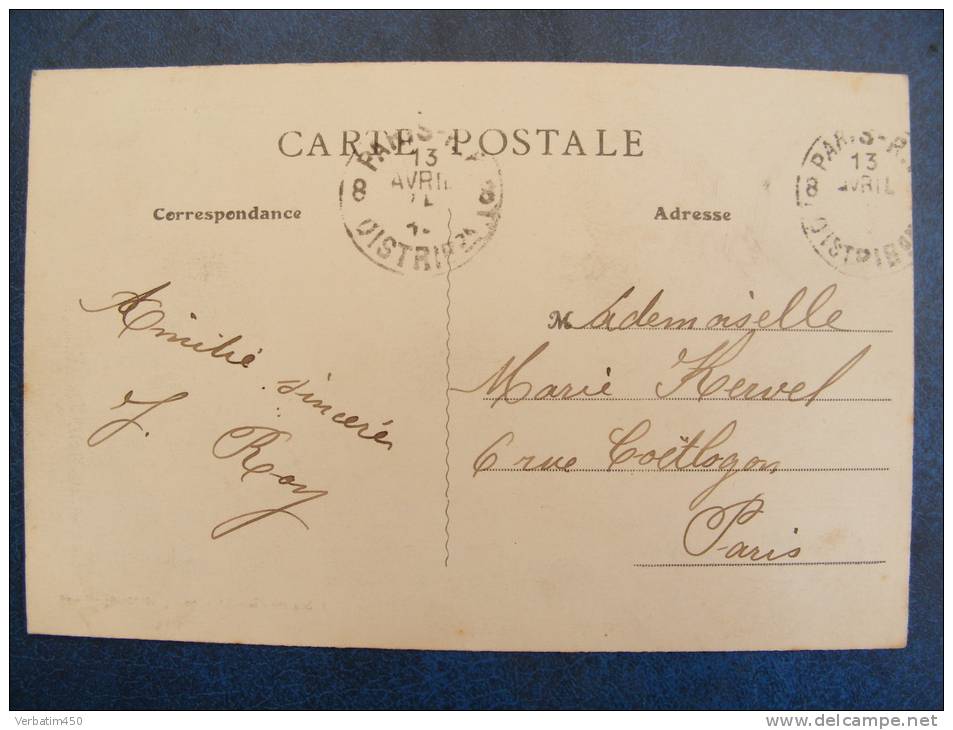 CARTE POSTALE
Correspondance
Adresse
PARIS
8
13
AVRIL
DISTRIB
PARIS-R.
8
13
AVRIL
DISTRIB
Amitié sincère
J. Roy
Mademoiselle
Marie Kervel
6 rue Coëtlogon
Paris
Verbatim450
www.delcampe.net